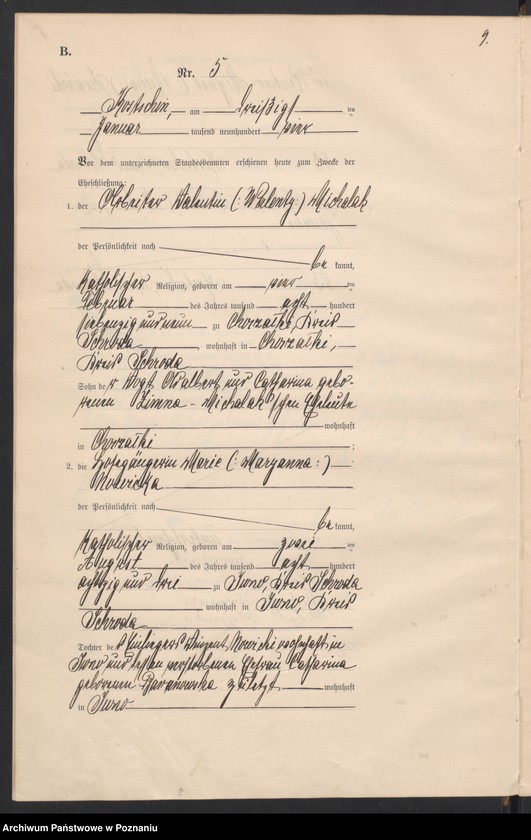 9.
B.
Nr. 5
Kostschin, am dreißigsten
Januar tausend neunhundert vier
Vor dem unterzeichneten Standesbeamten erschienen heute zum Zwecke der
Eheschließung:
1. der Arbeiter Valentin (: Walenty :) Michalak
der Persönlichkeit nach
be kannt,
katholischer Religion, geboren am vier ten
Februar des Jahres tausend acht hundert
siebenzig und neun zu Chorzalki, Kreis
Schroda, wohnhaft in Chorzalki,
Kreis Schroda
Sohn der Vogt Adalbert und Catharina gebo-
renen Zimna - Michalak'schen Eheleute
wohnhaft
in Chorzalki ;
2. die Losgängerin Marie (: Maryanna :)
Nowicka
der Persönlichkeit nach
be kannt,
katholischer Religion, geboren am zwei ten
August des Jahres tausend acht hundert
achtzig und drei zu Iwno, Kreis Schroda
wohnhaft in Iwno, Kreis
Schroda
Tochter des Einliegers Vinzent Nowicki wohnhaft in
Iwno und dessen verstorbenen Ehefrau Catharina
geborenen Baranowska zuletzt wohnhaft
in Iwno
Archiwum Państwowe w Poznaniu